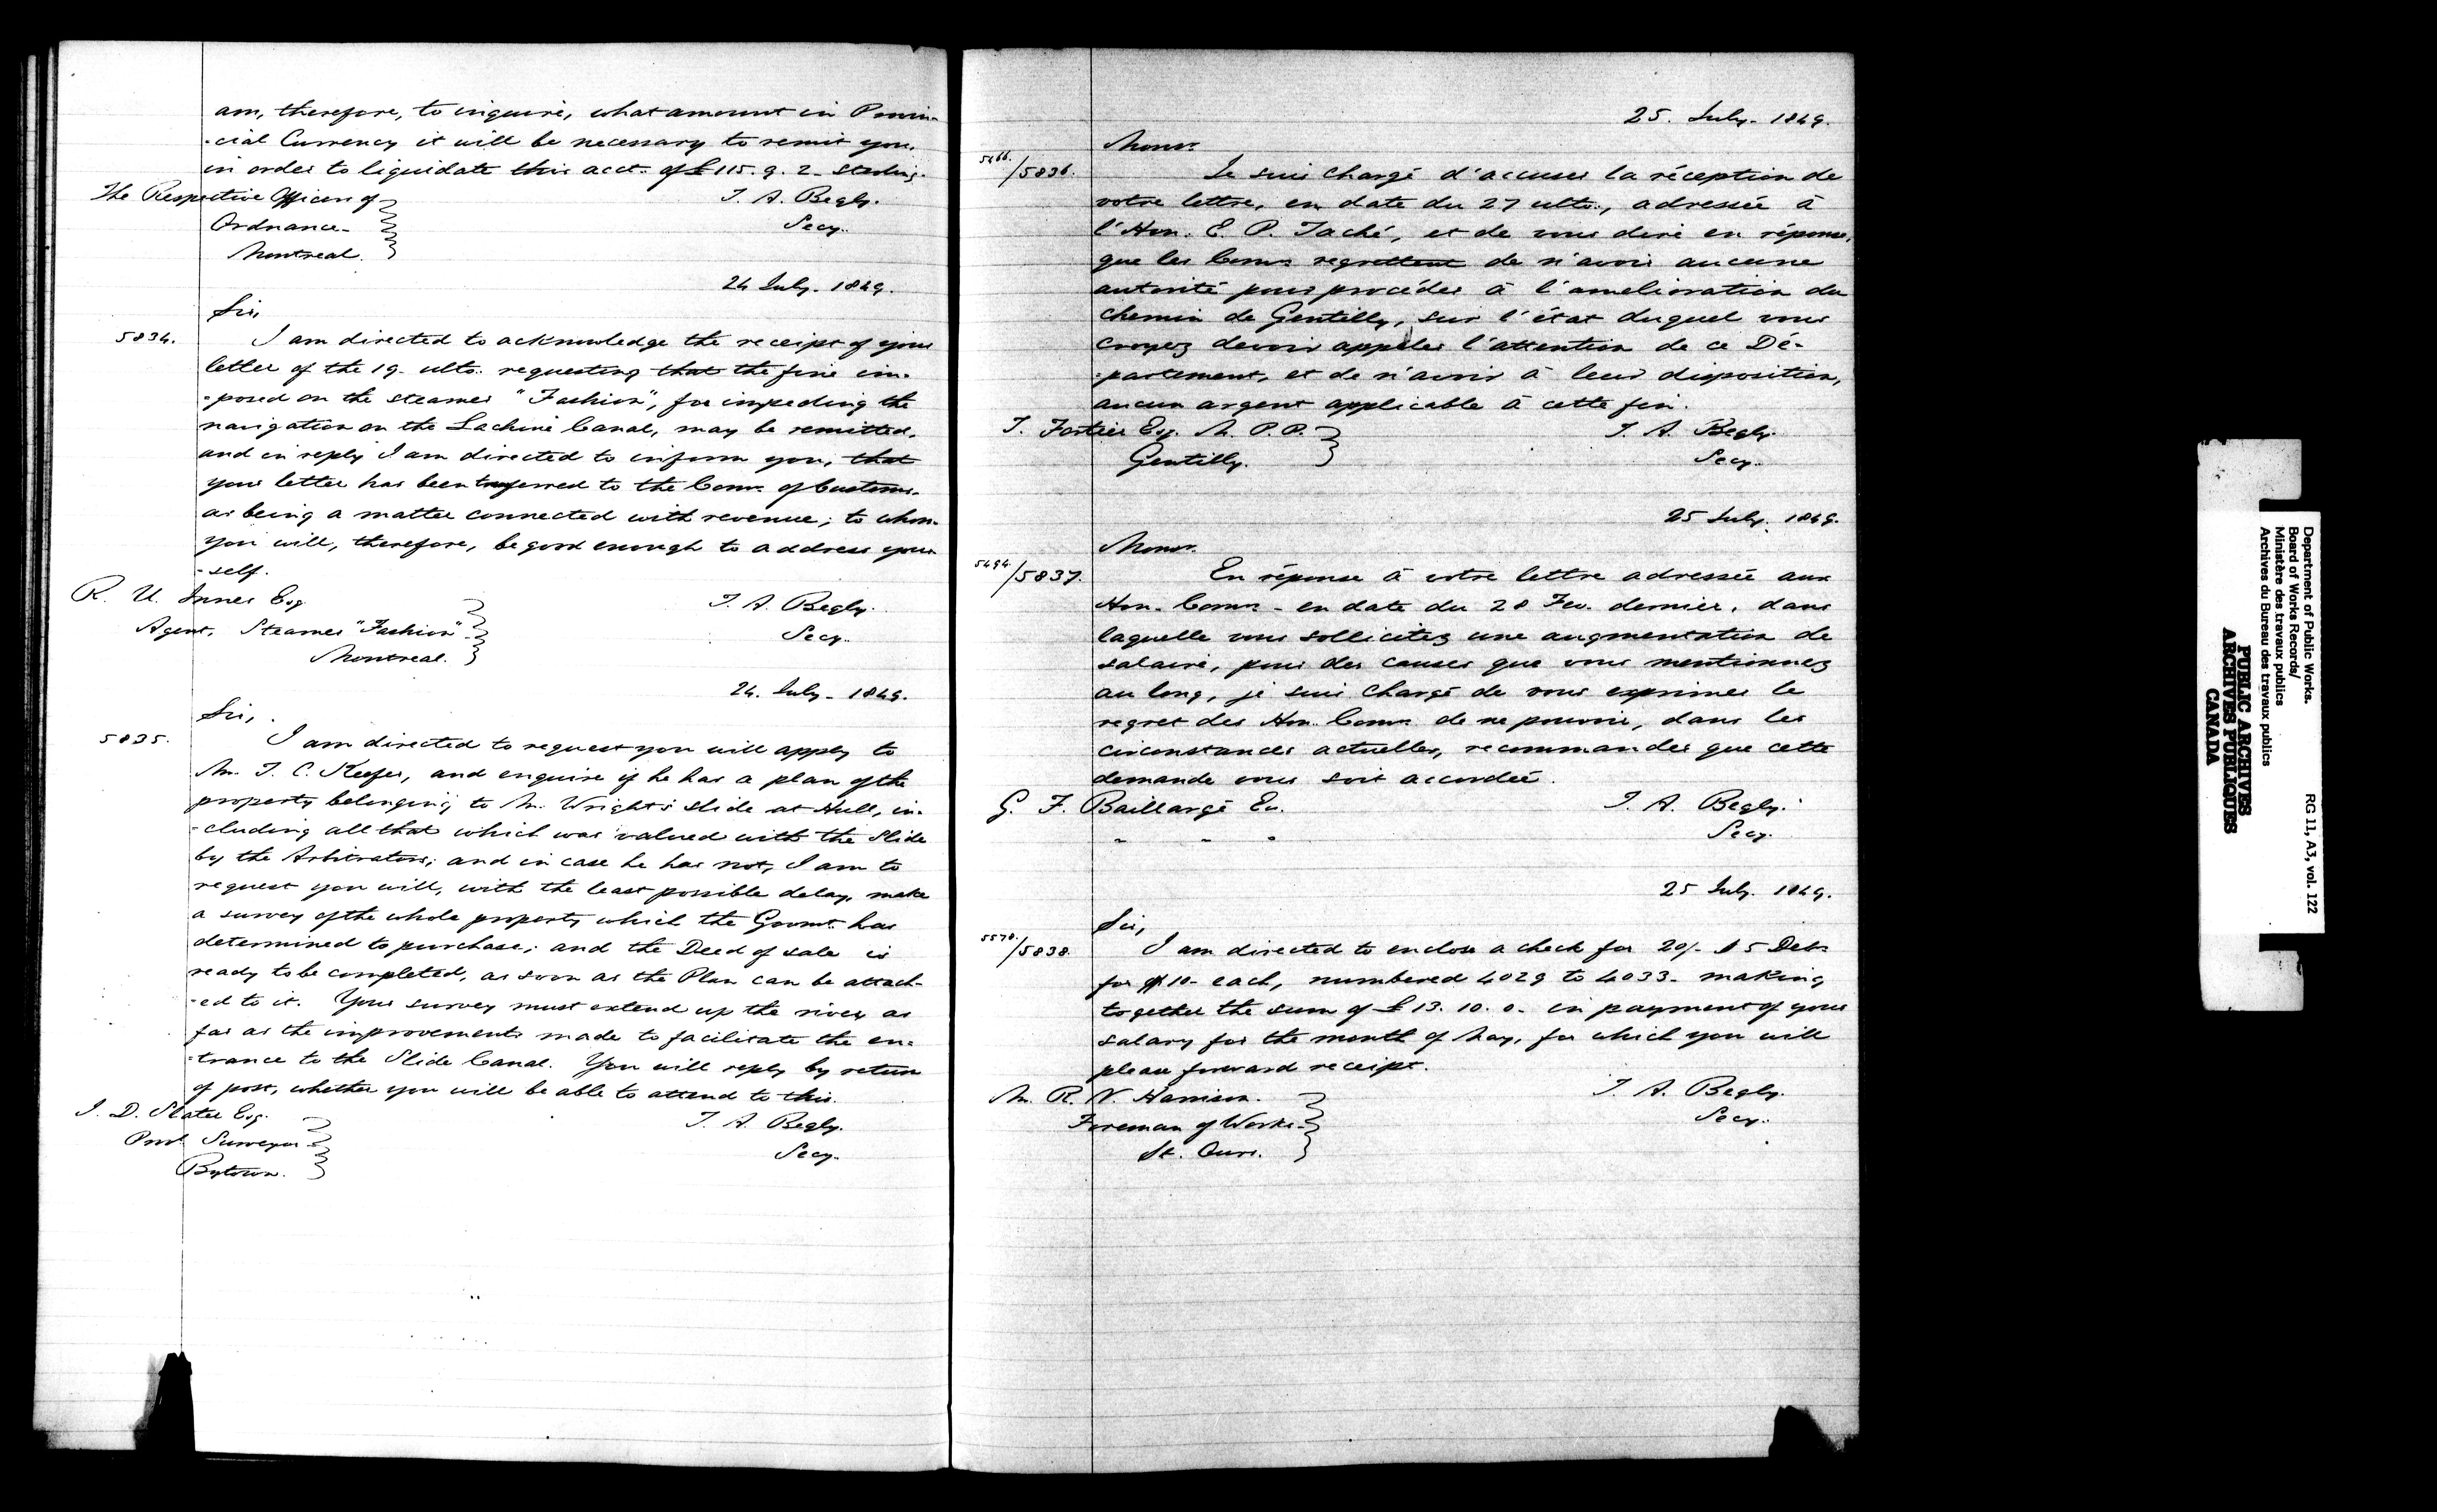 am, therefore, to inquire, what amount in Provin-
-cial Currency it will be necessary to remit you,
in order to liquidate this acct. of £115. 9. 2 - Sterling.
The Respective Officers of
Ordnance -
Montreal.
T. A. Begly.
Secy.
24 July. 1849.
Sir,
5834.
I am directed to acknowledge the receipt of your
letter of the 19- ulto. requesting that the fine im-
-posed on the steamer "Fashion", for impeding the
navigation on the Lachine Canal, may be remitted,
and in reply I am directed to inform you, that
your letter has been referred to the Comr. of Customs.
as being a matter connected with revenue; to whom
you will, therefore, be good enough to address your-
-self.
R. U. Innes Esq.
Agent, Steamer "Fashion"
Montreal.
T. A. Begly.
Secy.
24. July - 1849.
Sir,
5835.
I am directed to request you will apply to
Mr. T. C. Keefer, and enquire if he has a plan of the
property belonging to Mr. Wright's slide at Hull, in-
-cluding all that which was valued with the Slide
by the Arbitrators; and in case he has not, I am to
request you will, with the least possible delay, make
a survey of the whole property which the Govmt. has
determined to purchase; and the Deed of sale is
ready to be completed, as soon as the Plan can be attach-
-ed to it. Your survey must extend up the river as
far as the improvements made to facilitate the en-
-trance to the Slide Canal. You will reply by return
of post, whether you will be able to attend to this.
J. D. Slater Esq.
Provl. Surveyor
Bytown.
T. A. Begly.
Secy.
25. July - 1849.
Monsr.
5466./5836.
Je suis chargé d'accuser la réception de
votre lettre, en date du 27 ulto., adressée à
l'Hon. E. P. Taché, et de vous dire en réponse,
que les Comrs regrettent de n'avoir aucune
autorité pour procéder à l'amelioration du
chemin de Gentilly, sur l'état duquel vous
croyez devoir appeler l'attention de ce Dé-
-partement, et de n'avoir à leur disposition,
aucun argent applicable à cette fin.
T. Fortier Esq. M. P. P.
Gentilly.
T. A. Begly.
Secy.
25 July. 1849.
Monsr.
5494./5837.
En réponse à votre lettre adressée aux
Hon. Comrs - en date du 28 Fev. dernier, dans
laquelle vous sollicitez une augmentation de
salaire, pour des causes que vous mentionnez
au long, je suis chargé de vous exprimer le
regret des Hon. Comrs. de ne pouvoir, dans les
circonstances actuelles, recommander que cette
demande vous soit accordée.
G. F. Baillargé Eu.
" " "
T. A. Begly.
Secy.
25 July. 1849.
Sir,
5570./5838.
I am directed to enclose a check for 20/- & 5 Debs
for $10- each, numbered 4029 to 4033- making
together the sum of £13. 10. 0- in payment of your
salary for the month of May, for which you will
please forward receipt.
Mr. R. N. Harrison.
Foreman of Works
St. Ours.
T. A. Begly.
Secy.
Department of Public Works.
Board of Works Records/
Ministère des travaux publics
Archives du Bureau des travaux publics
RG 11, A3, vol. 122
PUBLIC ARCHIVES
ARCHIVES PUBLIQUES
CANADA